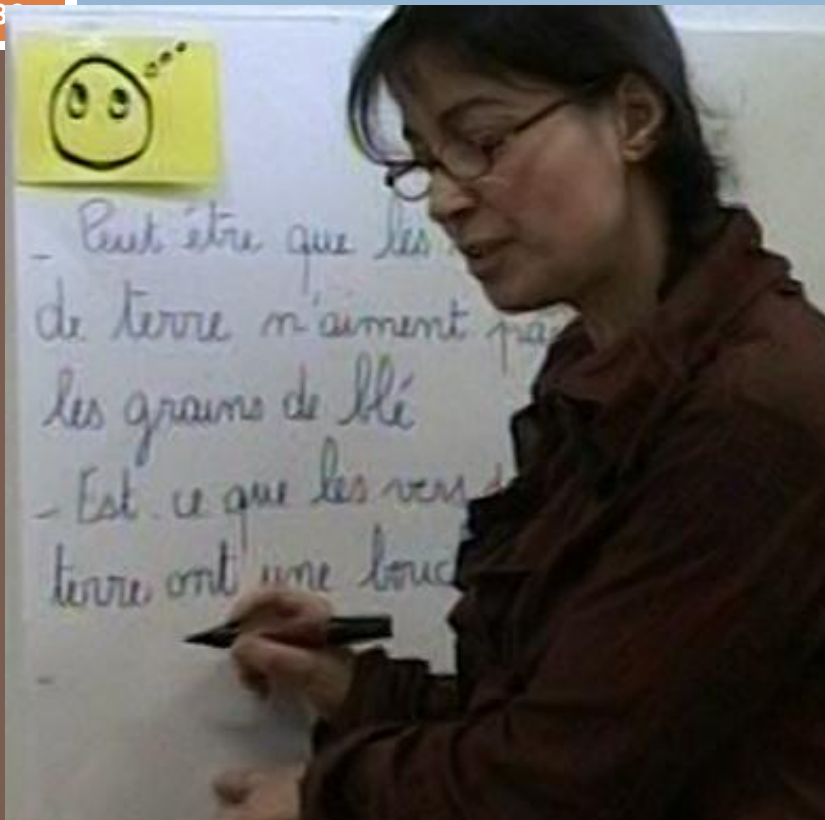 - Peut être que les
de terre n'aiment pa
les grains de blé
- Est-ce que les vers
terre ont une bouc
-